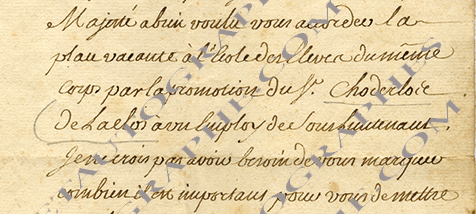 Majesté a bien voulu vous accorder la
place vacante à l'Ecole des Eleves du même
Corps par la promotion du Sr. Choderlos
de Laclos à un Employ de Sous Lieutenant.
Je ne crois pas avoir besoin de vous marquer
combien il est important pour vous de mettre
AUTOGRAPHES